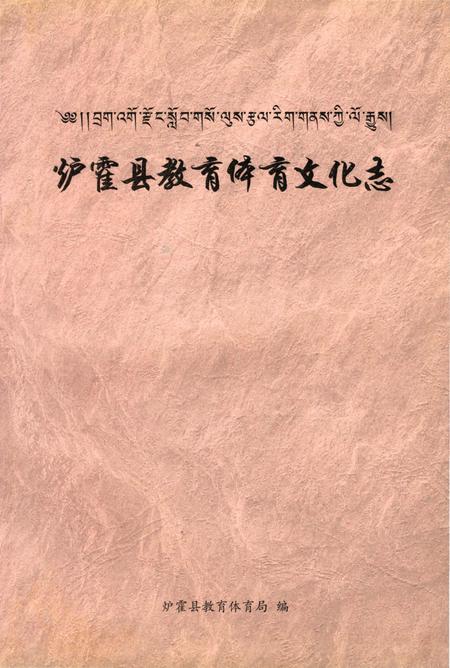 ༄༅།།བྲག་འགོ་རྫོང་སློབ་གསོ་ལུས་རྩལ་རིག་གནས་ཀྱི་ལོ་རྒྱུས།
炉霍县教育体育文化志
炉霍县教育体育局 编